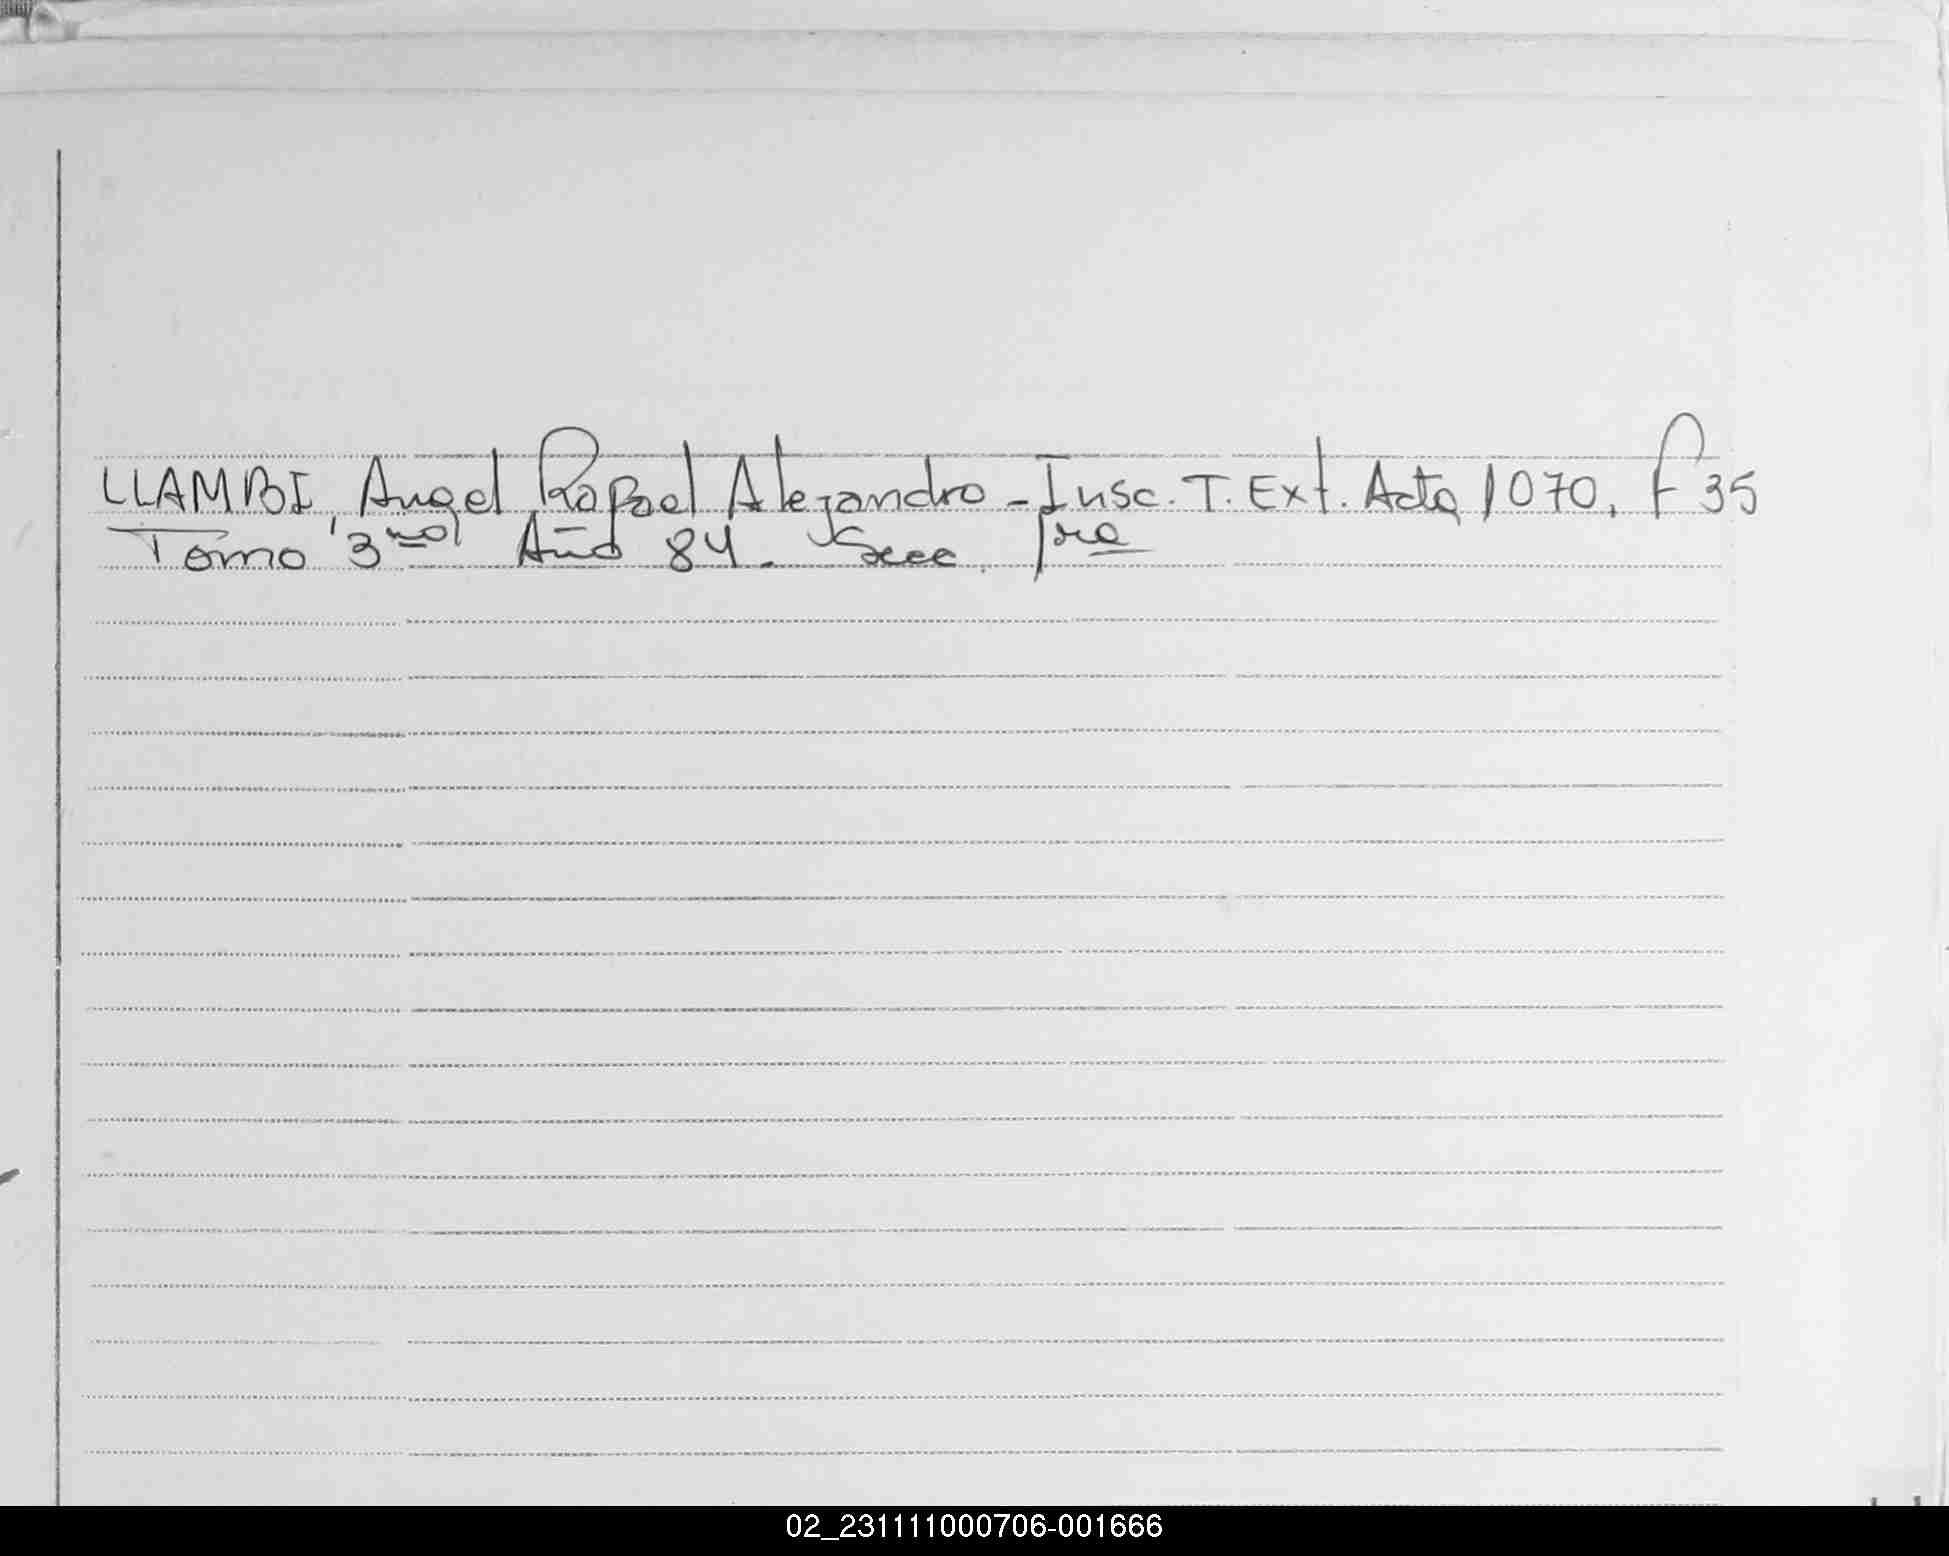 LLAMBI, Angel Rafael Alejandro - Insc. T. Ext. Acta 1070, F 35
Tomo 3 Año 84. Secc. 1ra
02_231111000706-001666